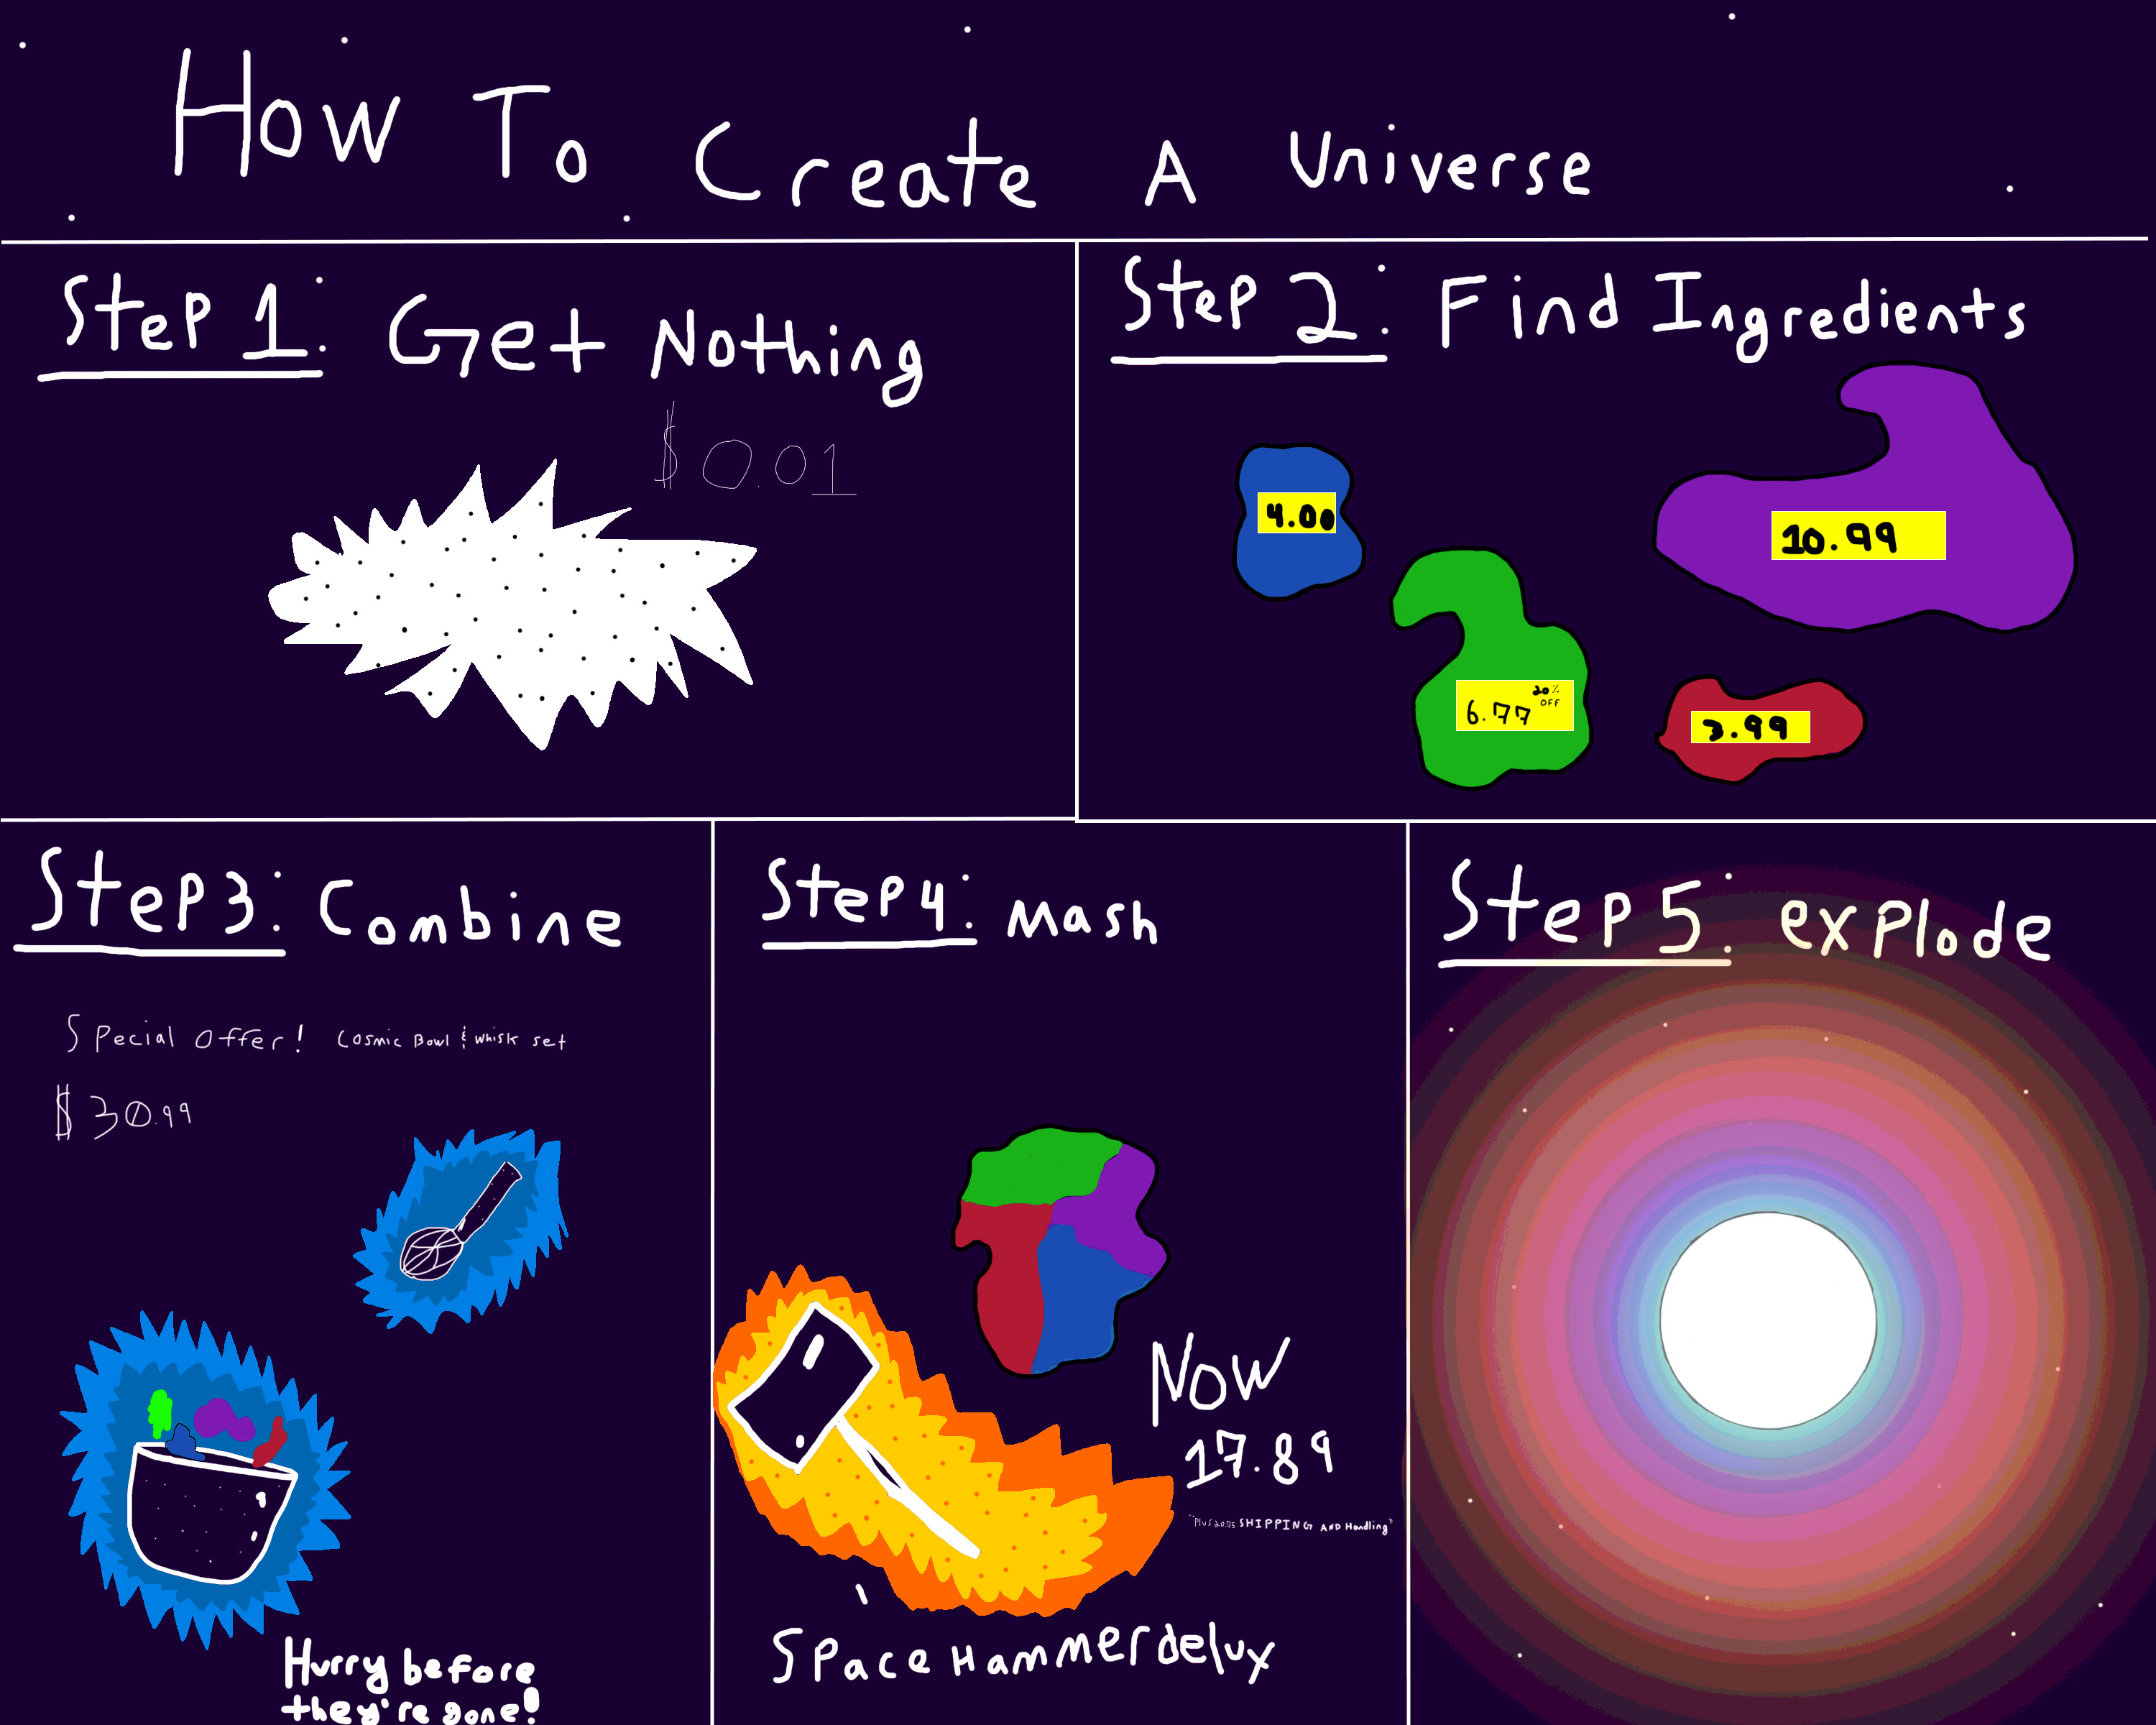 How To Create A Universe
Step 1: Get Nothing
$0.01
Step 2: Find Ingredients
4.00
10.99
20% OFF
6.77
3.99
Step3: Combine
Special Offer! Cosmic Bowl & Whisk set
$30.99
Hurry before
they're gone!
Step4: Mash
Now
17.89
"Plus SHIPPING AND Handling"
Space Hammer delux
Step 5: explode